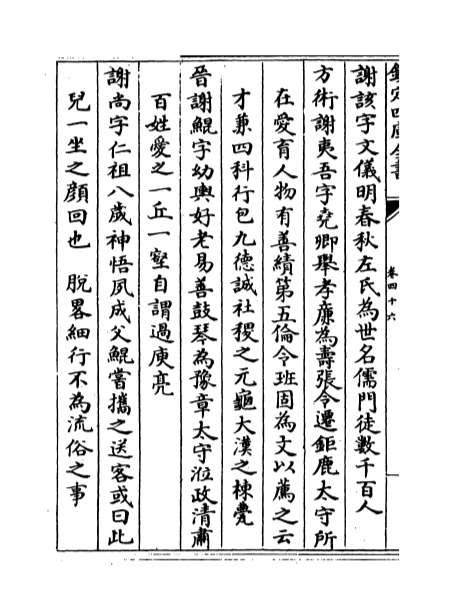 欽定四庫全書
卷四十六
謝該字文儀明春秋左氏為世名儒門徒數千百人
方術謝夷吾字堯卿舉孝廉為壽張令遷鉅鹿太守所
在愛育人物有善績第五倫令班固為文以薦之云
才兼四科行包九德誠社稷之元龜大漢之棟甍
晉謝鯤字幼輿好老易善鼓琴為豫章太守涖政清肅
百姓愛之一丘一壑自謂過庾亮
謝尚字仁祖八歲神悟夙成父鯤嘗攜之送客或曰此
兒一坐之顔回也　脫畧細行不為流俗之事